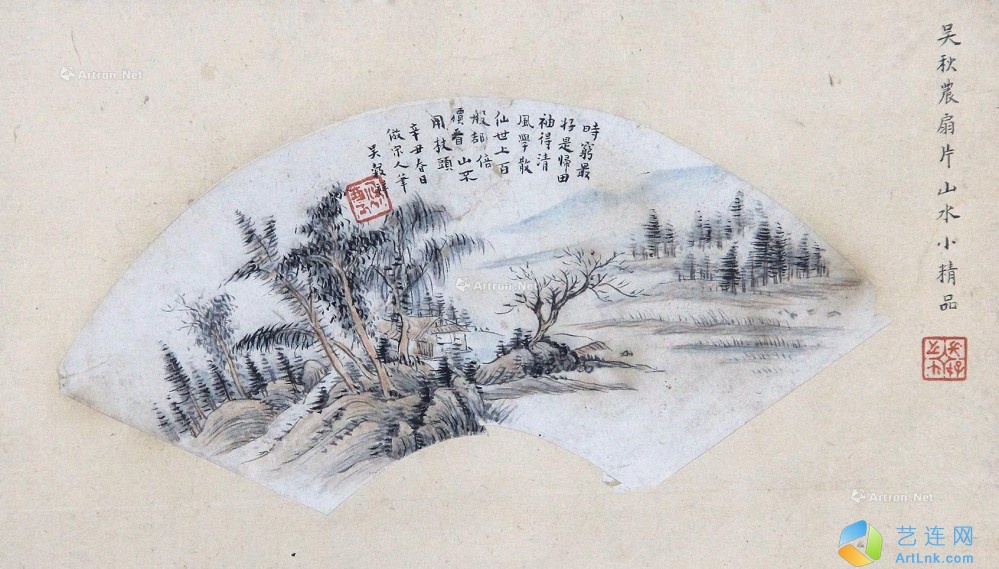 時窮最
好是歸田
袖得清
風學散
仙世上百
般都倍
價看山不
用杖頭
辛丑春日
倣宗人筆
吳穀祥
吴秋農扇片山水小精品
Artron.Net
Artron.Net
Artron.Net
艺连网
ArtLnk.com